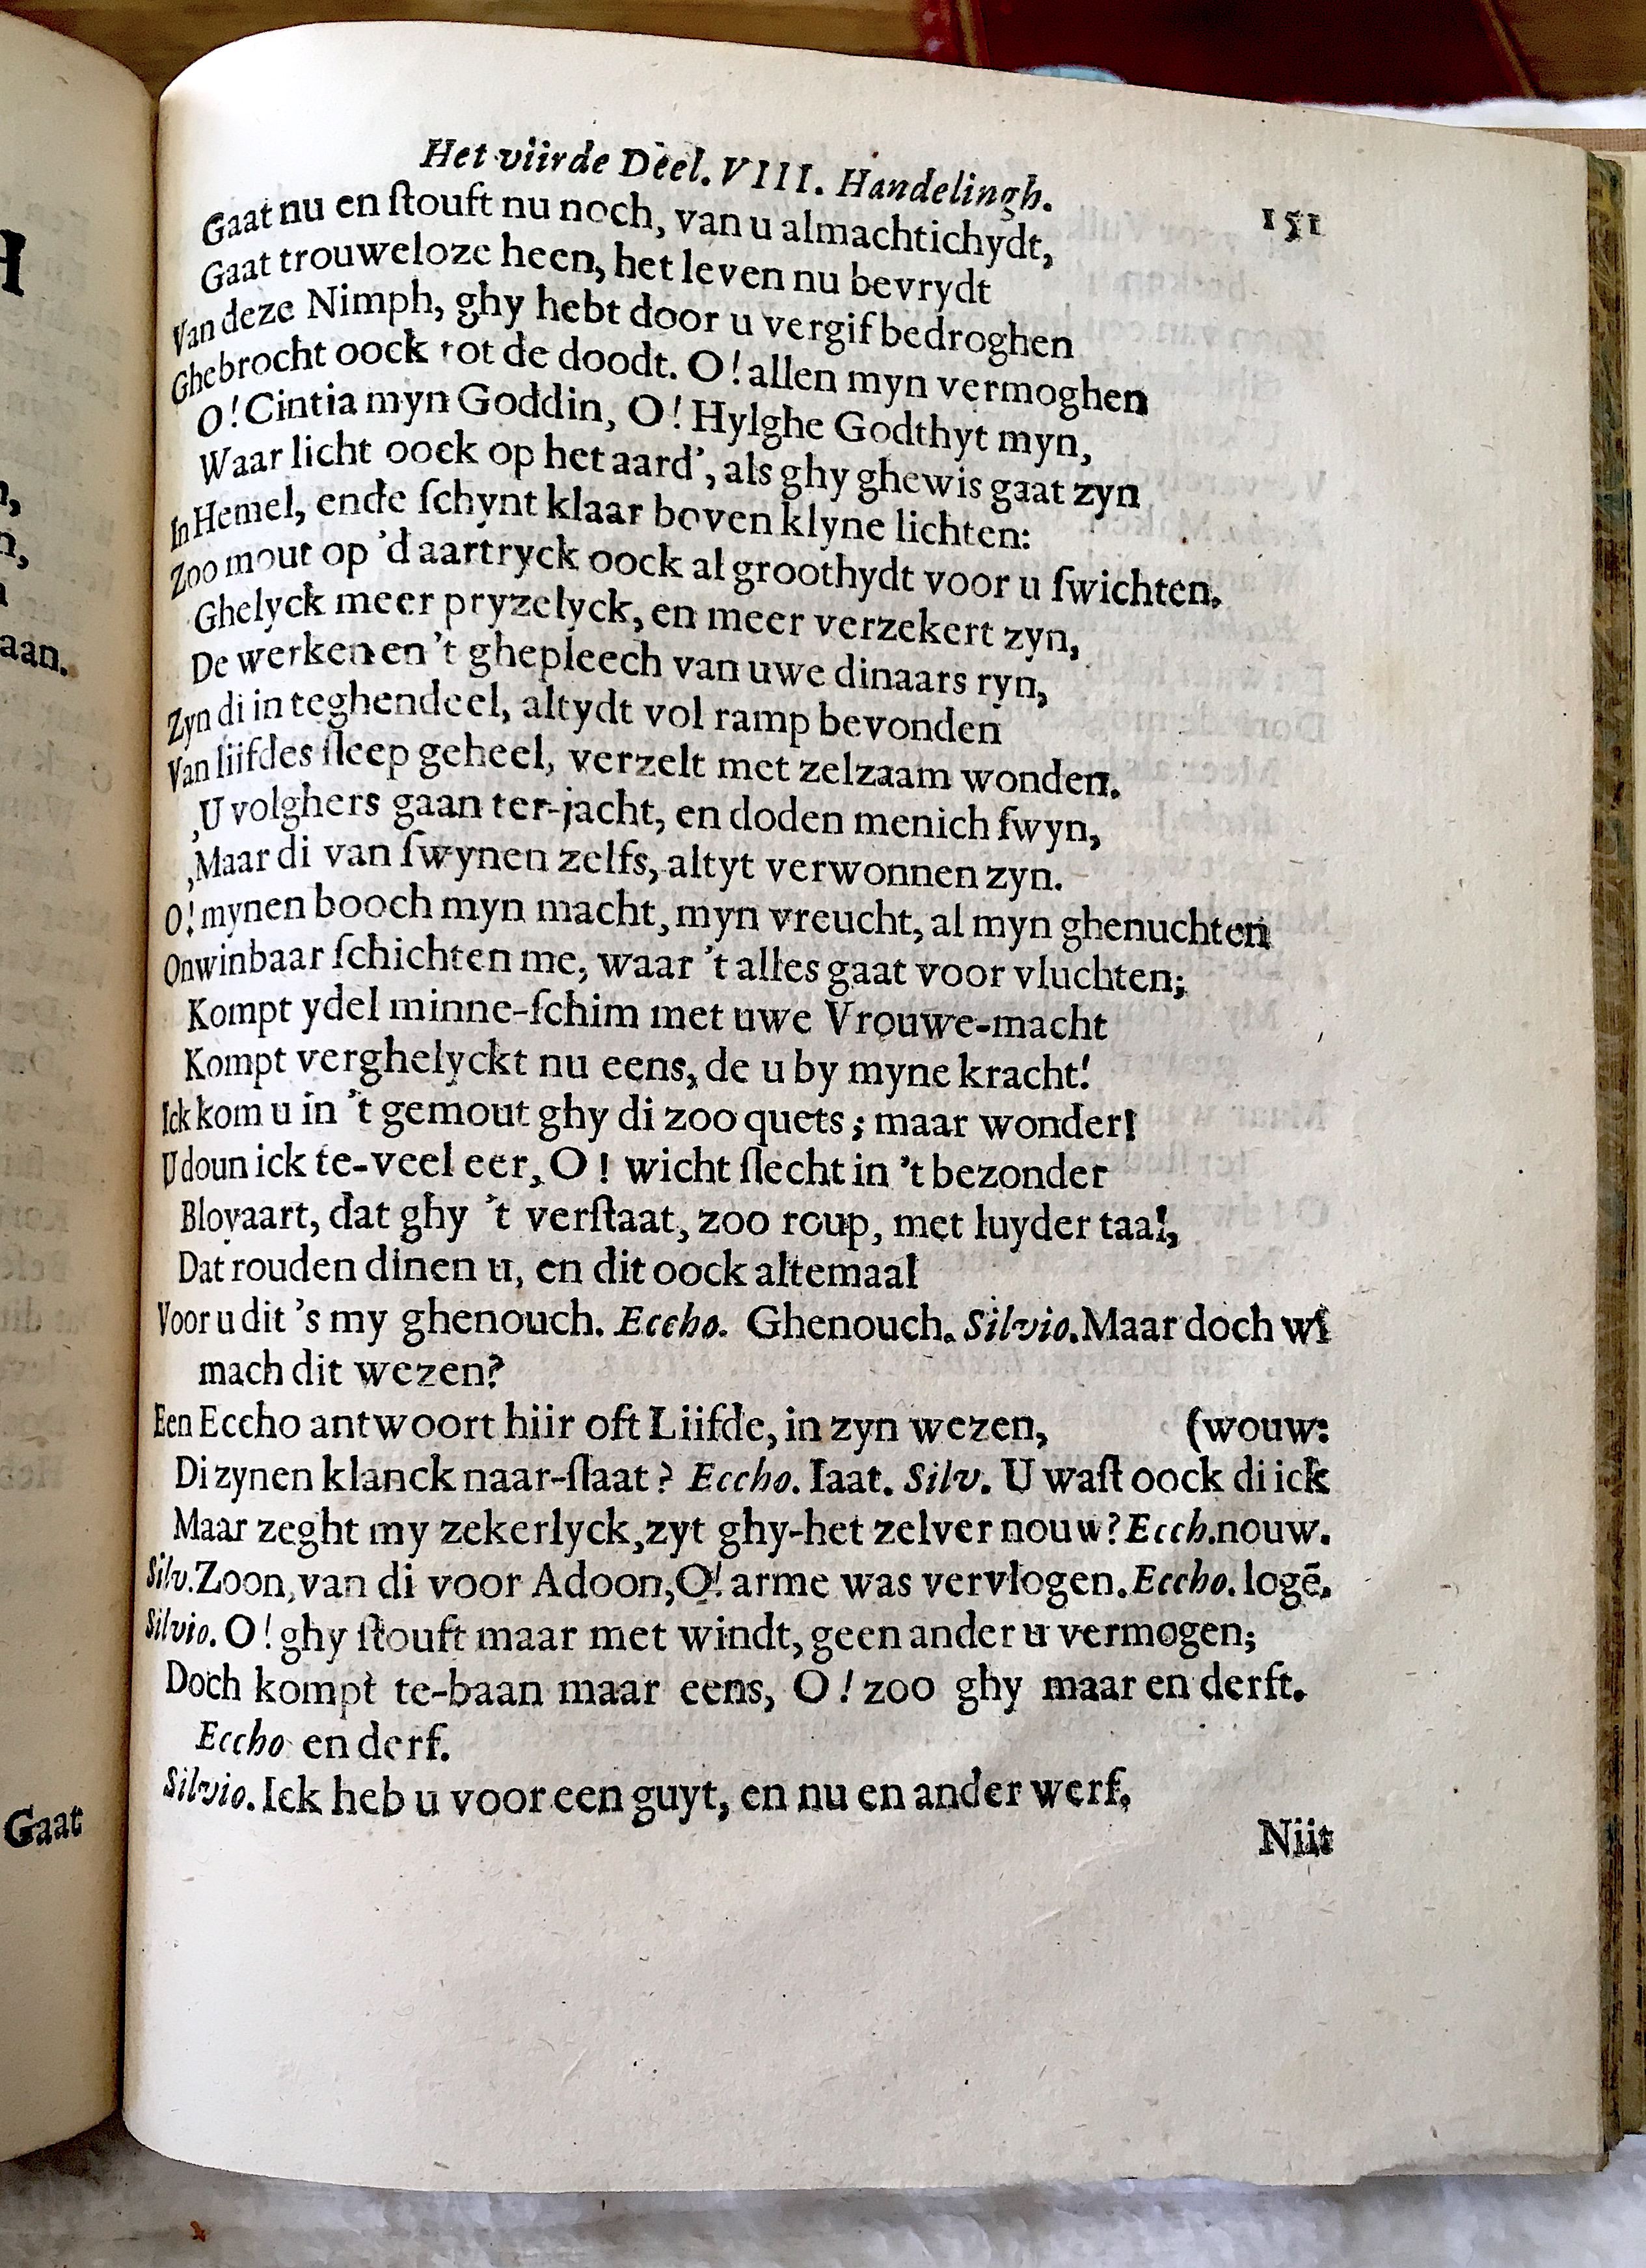 Het viirde Deel. VIII. Handelingh.
151
Gaat nu en ſtouft nu noch, van u almachtichydt,
Gaat trouweloze heen, het leven nu bevrydt
Van deze Nimph, ghy hebt door u vergif bedroghen
Ghebrocht oock tot de doodt. O! allen myn vermoghen
O! Cintia myn Goddin, O! Hylghe Godthyt myn,
Waar licht oock op het aard', als ghy ghewis gaat zyn
In Hemel, ende ſchynt klaar boven klyne lichten:
Zoo mout op 'd aartryck oock al groothydt voor u ſwichten.
Ghelyck meer pryzelyck, en meer verzekert zyn,
De werken en 't ghepleech van uwe dinaars ryn,
Zyn di in teghendeel, altydt vol ramp bevonden
Van liifdes ſleep geheel, verzelt met zelzaam wonden.
,U volghers gaan ter-jacht, en doden menich ſwyn,
,Maar di van ſwynen zelfs, altyt verwonnen zyn.
O! mynen booch myn macht, myn vreucht, al myn ghenuchten
Onwinbaar ſchichten me, waar 't alles gaat voor vluchten;
Kompt ydel minne-ſchim met uwe Vrouwe-macht
Kompt verghelyckt nu eens, de u by myne kracht!
Ick kom u in 't gemout ghy di zoo quets; maar wonder!
U doun ick te-veel eer, O! wicht ſlecht in 't bezonder
Blovaart, dat ghy 't verſtaat, zoo roup, met luyder taal,
Dat rouden dinen u, en dit oock altemaal
Voor u dit 's my ghenouch. Eccho. Ghenouch. Silvio. Maar doch wi
mach dit wezen?
Een Eccho antwoort hiir oft Liifde, in zyn wezen, (wouw:
Di zynen klanck naar-ſlaat? Eccho. Iaat. Silv. U waſt oock di ick
Maar zeght my zekerlyck, zyt ghy-het zelver nouw? Ecch. nouw.
Silv. Zoon, van di voor Adoon, O! arme was vervlogen. Eccho. logē.
Silvio. O! ghy ſtouft maar met windt, geen ander u vermogen;
Doch kompt te-baan maar eens, O! zoo ghy maar en derft.
Eccho en derf.
Silvio. Ick heb u voor een guyt, en nu en ander werf,
Niit
H
n,
n,
aan.
Gaat